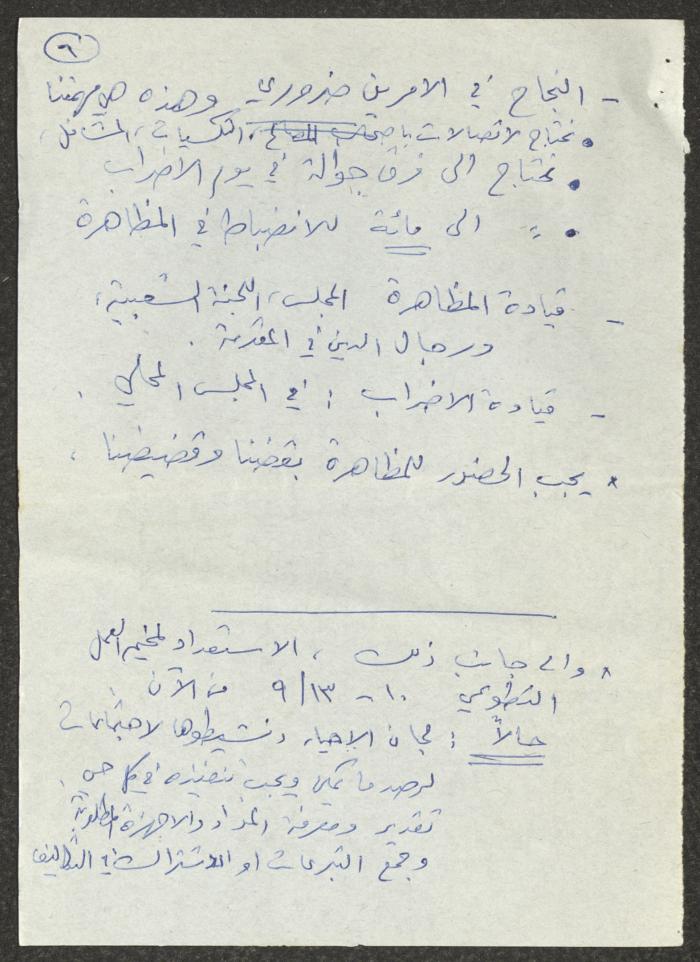 ٩
- النجاح في الامرين ضروري وهذه هي مهمتنا
• نحتاج لاتصالات باصحاب التكسيات، المشاغل،
• نحتاج الى فرق جوالة في يوم الاضراب
• " الى مائة للانضباط في المظاهرة
- قيادة المظاهرة المجلس، اللجنة الشعبية،
ورجال الدين في المقدمة.
- قيادة الاضراب : في المجلس المحلي.
* يجب الحضور للمظاهرة بقضنا وقضيضنا.
* والى جانب ذلك، الاستعداد لمخيم العمل
التطوعي ١٠ - ٩/١٣ من الآن.
حالاً : لجان الاحياء ونشيطوها لاجتماعات
لرصد ما يمكن ويجب تنفيذه في كل حي.
تقدير ومعرفة المواد والاجهزة المطلوبة
وجمع التبرعات او الاشتراك في التكاليف